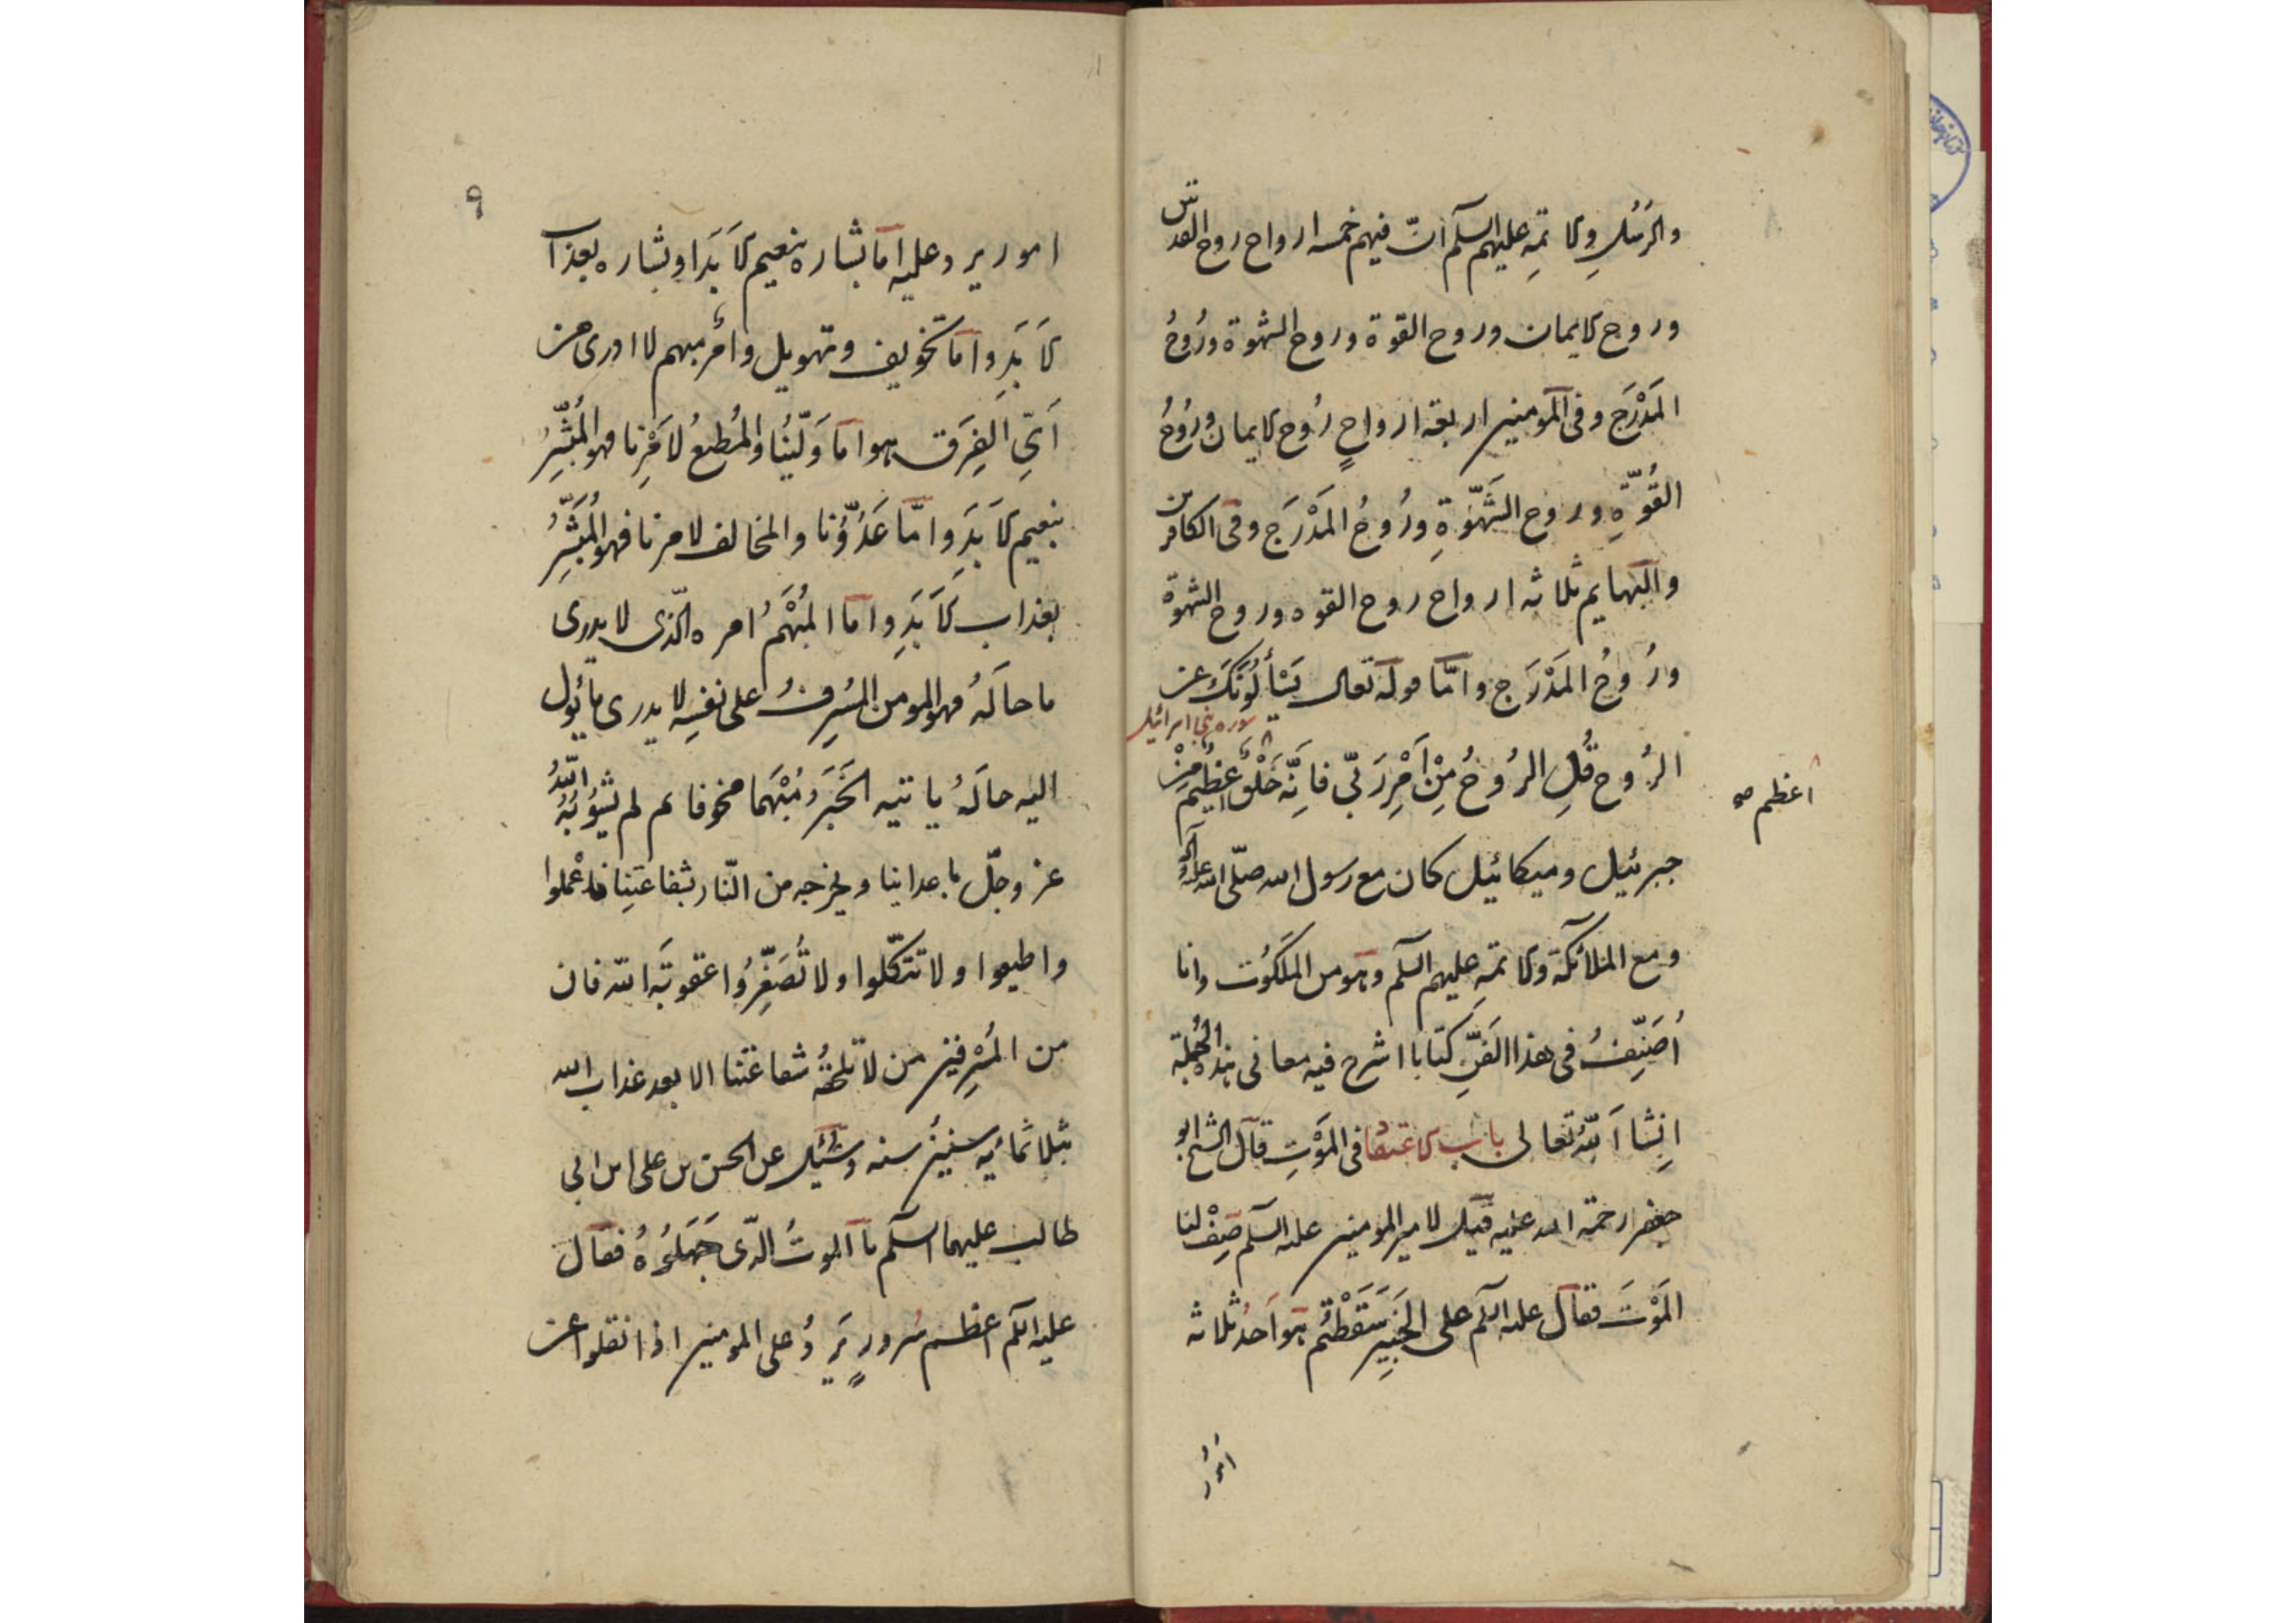 والرسل والائمة عليهم السلم انّ فيهم خمسه ارواح روح القدس
وروح الايمان وروح القوة وروح الشهوة ورُوحُ
المَدْرَج وفى المومنين اربعة ارواحٍ رُوح الايمان ورُوحُ
القُوّةِ وروح الشَهْوَةِ ورُوحُ المَدْرَج وفى الكافرين
والبهايم ثلاثه ارواح روح القوه وروح الشهوة
ورُوحُ المَدْرَج وامّا قوله تعالى يَسْأَلُونَكَ عن
سوره بنى اسرائيل
الرُوح قُلِ الرُوحُ مِنْ اَمْرِ رَبّى فاِنّه خَلْقٌ عظيمٌ مِنْ
اعظم صح
جبرئيل وميكائيل كان مع رسول الله صلّى الله عليه وآله
ومع الملائكة والائمة عليهم السلم وهو من الملكوت وانا
اُصَنِّفُ فى هذا الفَنِّ كتابا اشرح فيه معانى هذه الجُملة
اِنشاَ اَللّهُ تعالى باب الاعتقاد فى المَوْتِ قال الشيخ ابو
جعفر رحمة الله عليه قيل لامير المومنين عليه السلم صِفْ لنا
المَوْتَ فقال عليه السلم على الخَبِيرِ سَقَطْتُم هو اَحدُ ثلاثه
امُور
٩
امور يرد عليه اما بشاره بنعيم الاَبَدَ او بشاره بعذاب
الاَبَدِ واما تخويف وتهويل وأمر مبهم لا ادرى من
اَىِّ الفِرَق هو اما وَلّيُنا والمُطيعُ لاَمْرِنا فهو المُبَشَّرُ
بنعيم الاَبَدِ وامّا عَدُوُّنا والمخالف لامرنا فهو المُبَشَّرُ
بعذاب الاَبَدِ واما المُبْهَمُ امره الّذى لا يدرى
ما حاَلَهُ فهو المومن المُسْرِفُ على نفسِه لا يدرى ما يَؤُل
اليه حالَهُ ياتيه الخَبَرَ مُبْهَما مخوفا ثم لم يُسَوّيَهُ اللّهُ
عز وجلّ باعداينا ويخرجه من النّار بشفاعتِنا فاعْملوا
واطيعوا ولا تتّكلوا ولا تُصَغِّرُوا عقوبَة الله فان
من المُسْرِفين من لا تلحَقُهُ شفاعَتنا الا بعد عذاب الله
بثلاثمائه سنين سنه وسُئِل عن الحسن بن على ابن ابى
طالب عليهما السلم ما الموتُ الذّى جَهَلوُهُ فقال
عليه السلم اعظم سُرورٍ يَرِدُ على المومنين اذا نقلوا عن